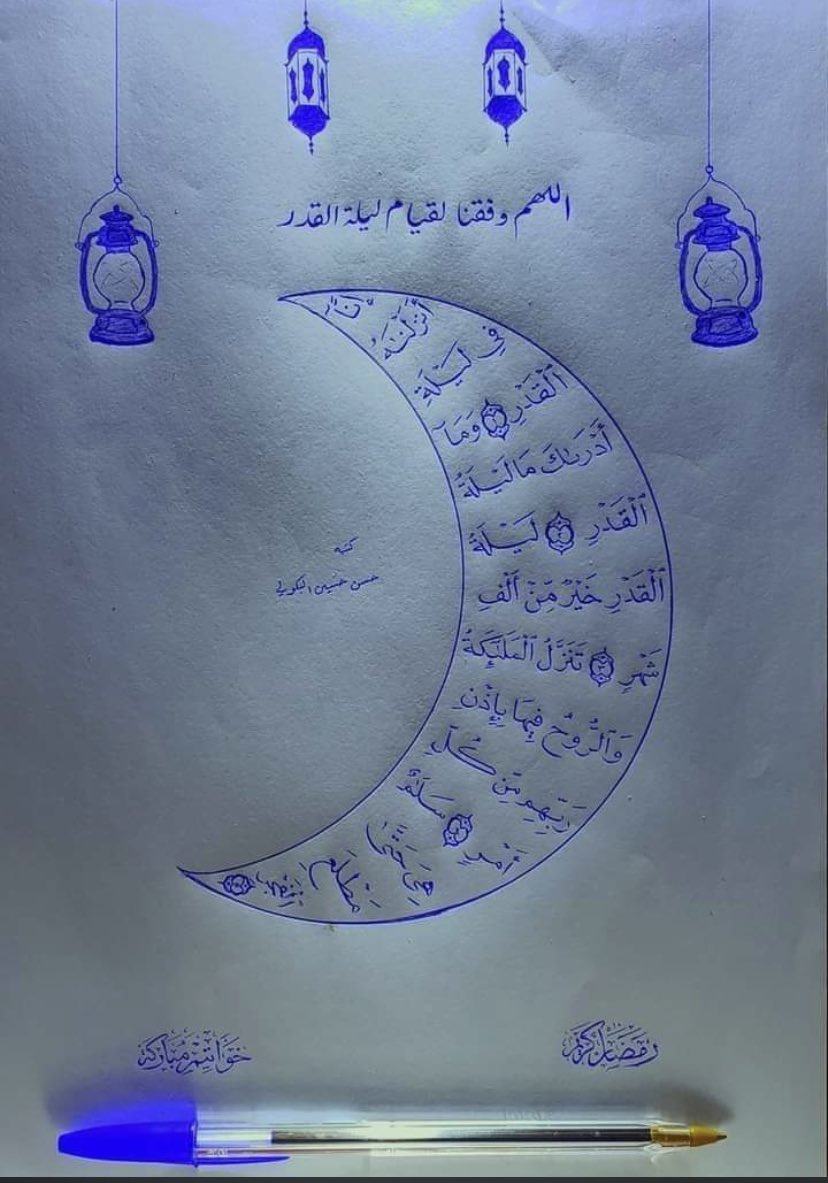 اللهم وفقنا لقيام ليلة القدر
إِنَّآ
أَنزَلۡنَٰهُ
فِي لَيۡلَةِ
ٱلۡقَدۡرِ ١ وَمَآ
أَدۡرَىٰكَ مَا لَيۡلَةُ
ٱلۡقَدۡرِ ٢ لَيۡلَةُ
ٱلۡقَدۡرِ خَيۡرٌ مِّنۡ أَلۡفِ
شَهۡرٍ ٣ تَنَزَّلُ ٱلۡمَلَٰٓئِكَةُ
وَٱلرُّوحُ فِيهَا بِإِذۡنِ
رَبِّهِم مِّن كُلِّ
أَمۡرٍ ٤ سَلَٰمٌ
هِيَ حَتَّىٰ
مَطۡلَعِ
ٱلۡفَجۡرِ ٥
كتبه
حسن حسين البكولي
رمضان كريم
خواتيم مباركة